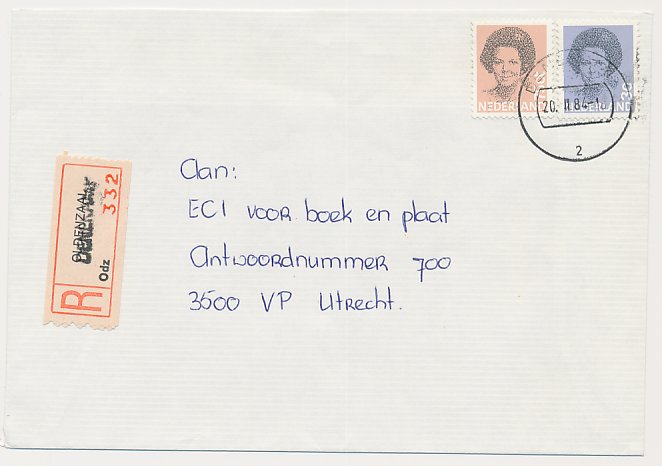 NEDERLAND
NEDERLAND
20. II. 84-1
2
R
OLDENZAAL
Odz
332
Aan:
ECI voor boek en plaat
Antwoordnummer 700
3500 VP Utrecht.